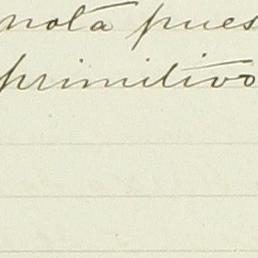 nota pues
primitivo